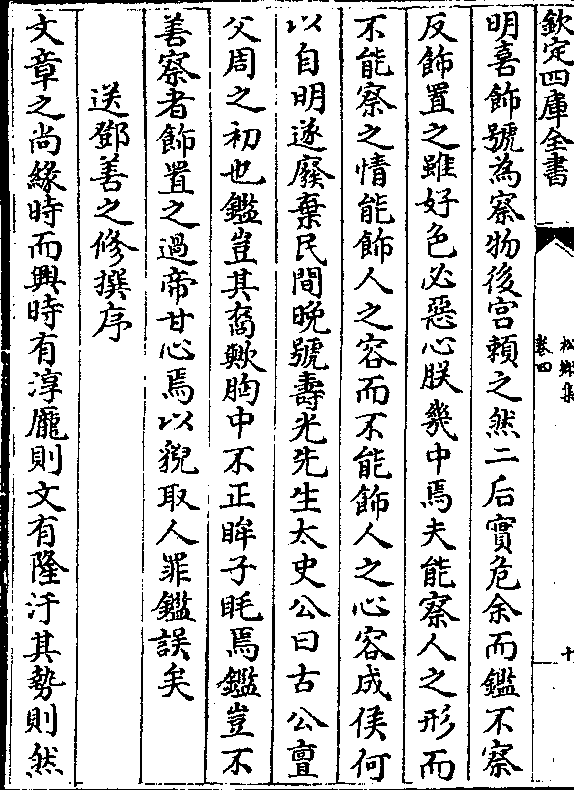 欽定四庫全書
松鄉集
卷四
十
明喜飾號為察物後宫賴之然二后實危余而鑑不察
反飾置之雖好色必惡心朕幾中焉夫能察人之形而
不能察之情能飾人之容而不能飾人之心容成侯何
以自明遂廢棄民間晚號壽光先生太史公曰古公亶
父周之初也鑑豈其裔歟胸中不正眸子眊焉鑑豈不
善察者飾置之過帝甘心焉以猊取人罪鑑誤矣
送鄧善之修撰序
文章之尚緣時而興時有淳龐則文有隆汙其勢則然